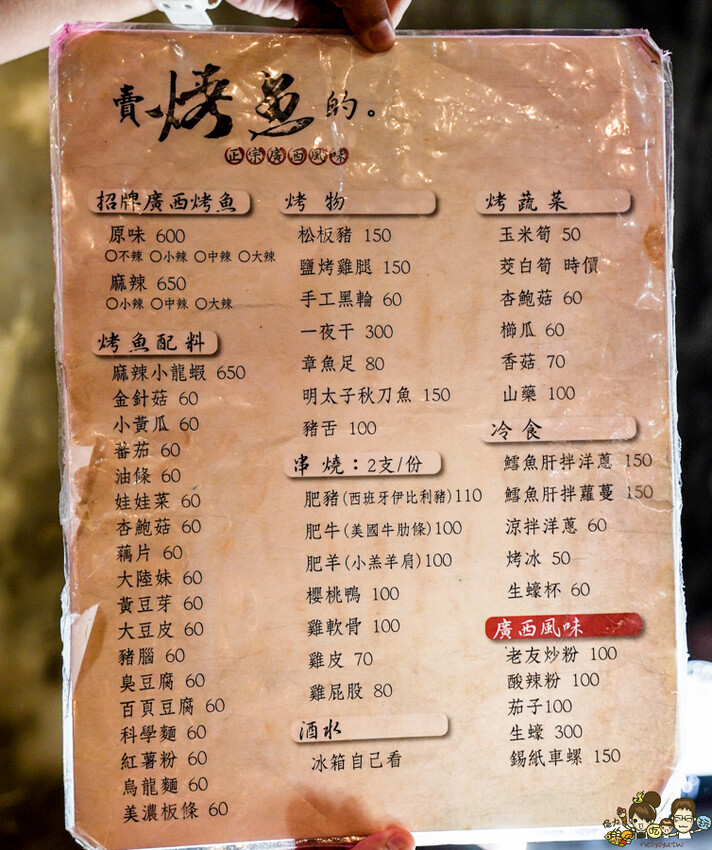 賣烤魚的。
正宗廣西風味
招牌廣西烤魚
原味 600
○不辣 ○小辣 ○中辣 ○大辣
麻辣 650
○小辣 ○中辣 ○大辣
烤魚配料
麻辣小龍蝦 650
金針菇 60
小黃瓜 60
蕃茄 60
油條 60
娃娃菜 60
杏鮑菇 60
藕片 60
大陸妹 60
黃豆芽 60
大豆皮 60
豬腦 60
臭豆腐 60
百頁豆腐 60
科學麵 60
紅薯粉 60
烏龍麵 60
美濃板條 60
烤物
松板豬 150
鹽烤雞腿 150
手工黑輪 60
一夜干 300
章魚足 80
明太子秋刀魚 150
豬舌 100
串燒:2支/份
肥豬(西班牙伊比利豬)110
肥牛(美國牛肋條)100
肥羊(小羔羊肩)100
櫻桃鴨 100
雞軟骨 100
雞皮 70
雞屁股 80
酒水
冰箱自己看
烤蔬菜
玉米筍 50
茭白筍 時價
杏鮑菇 60
櫛瓜 60
香菇 70
山藥 100
冷食
鱈魚肝拌洋蔥 150
鱈魚肝拌蘿蔓 150
涼拌洋蔥 60
烤冰 50
生蠔杯 60
廣西風味
老友炒粉 100
酸辣粉 100
茄子100
生蠔 300
錫紙車螺 150